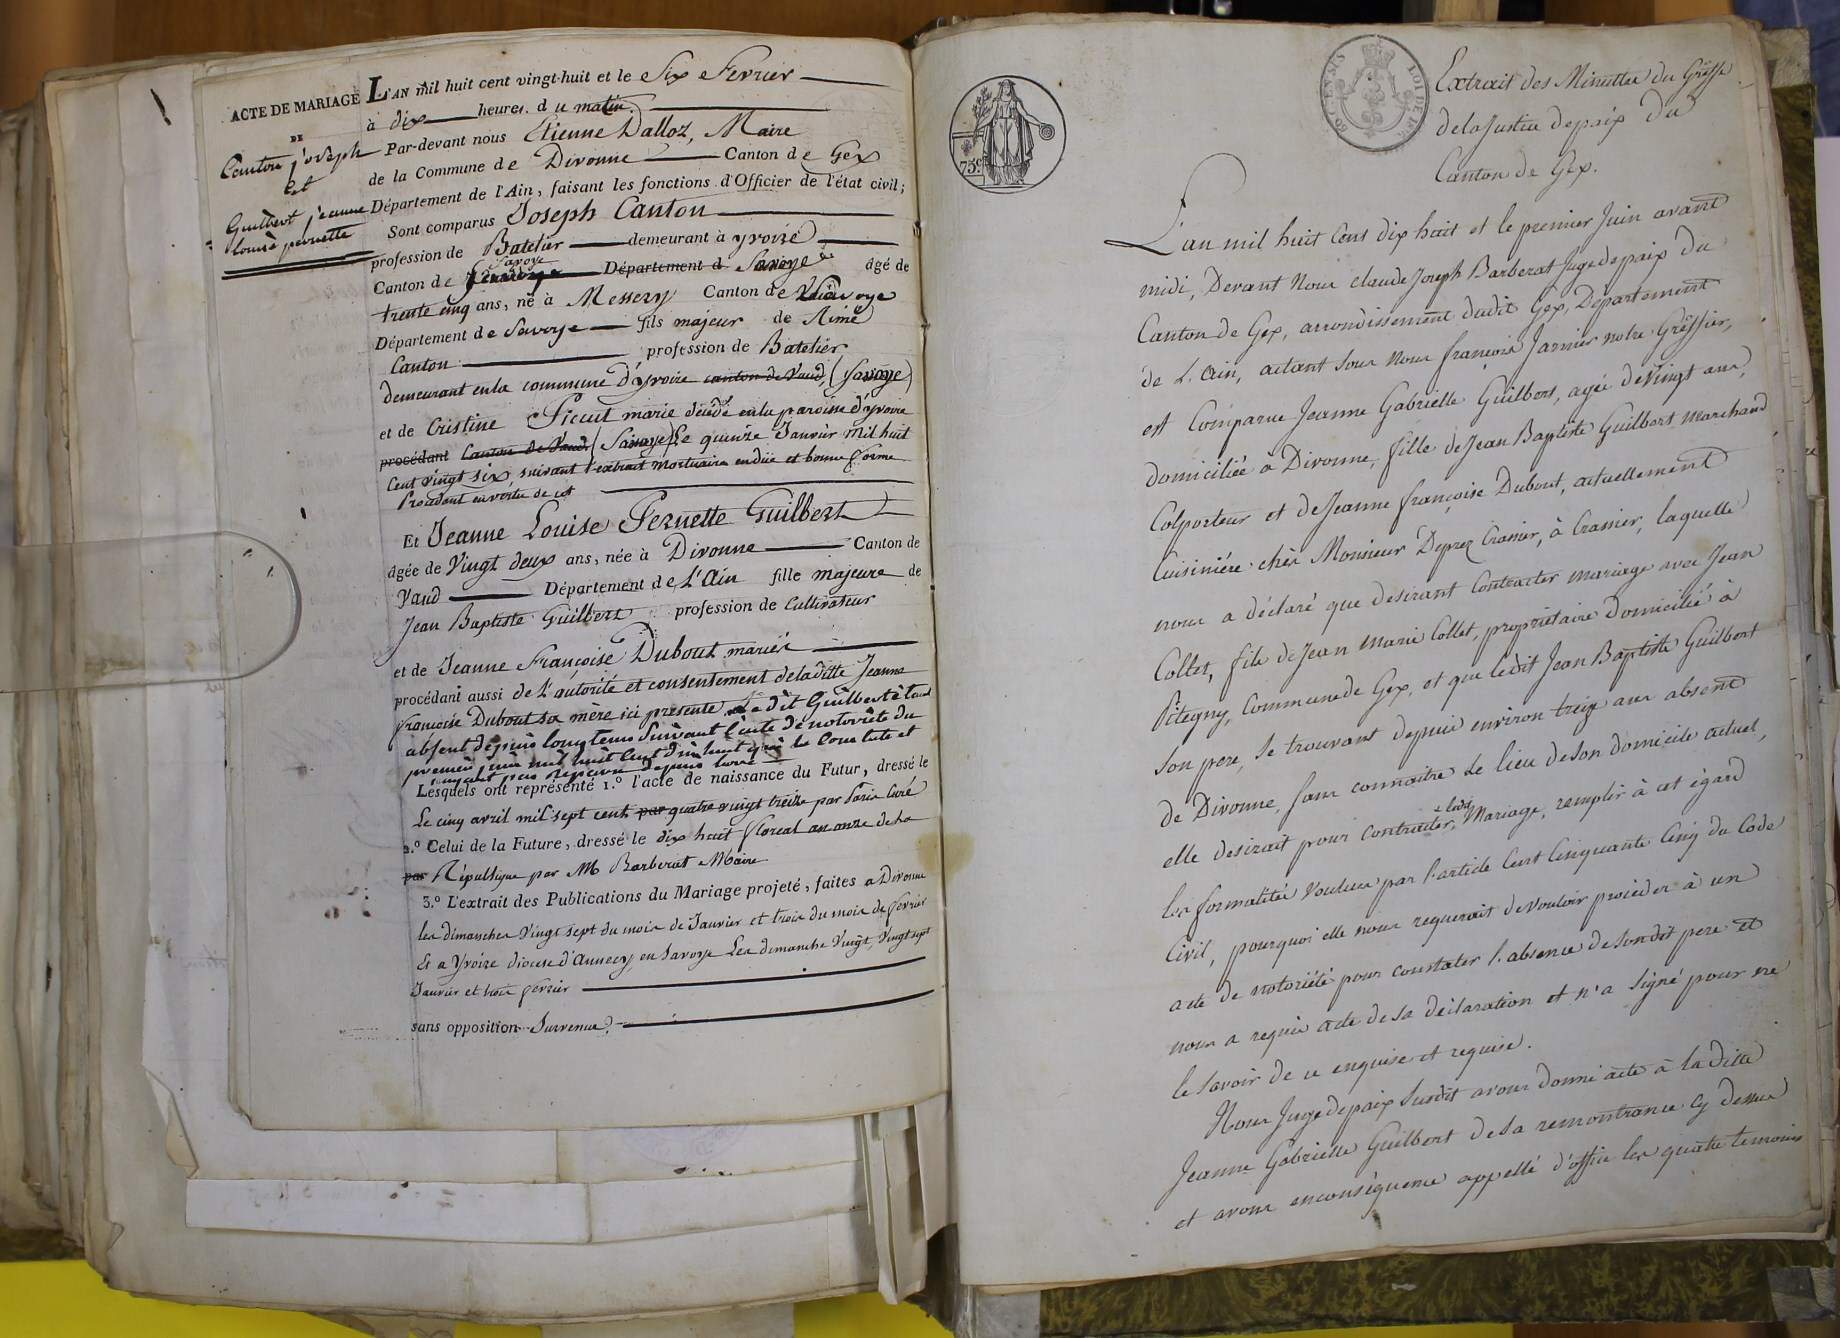 ACTE DE MARIAGE
DE
Canton joseph
Et
Guilbert jeanne
louise pernette
L'AN mil huit cent vingt-huit et le Six Fevrier
à dix heures. du matin
Par-devant nous Etienne Dalloz, Maire
de la Commune de Divonne Canton de Gex
Département de l'Ain, faisant les fonctions d'Officier de l'état civil;
Sont comparus Joseph Canton
profession de Batelier demeurant à yvoire
Savoye
Canton de Département d Savoye âgé de
trente cinq ans, né à Messery Canton de
Département de Savoye fils majeur de Aimé
Canton profession de Batelier
demeurant en la commune d'yvoire canton de Vaud, (Savoye)
et de Cristine Picut marie décédé en la paroisse d'yvoire
procédant Canton de Vaud (Savoye) Le quinze Janvier Mil huit
Cent vingt six, suivant l'extrait mortuaire en due et bonne forme
Procédant en vertu de cet
Et Jeanne Louise Pernette Guilbert
âgée de Vingt deux ans, née à Divonne Canton de
Vaud Département de L'Ain fille majeure de
Jean Baptiste Guilbert profession de Cultivateur
et de Jeanne Françoise Dubout mariés
procédant aussi de L'autorité et consentement de laditte Jeanne
françoise Dubout sa mère ici présente Le dit Guilbert étant
absent depuis longtems suivant l'acte de notoriété du
premier juin mil huit Cent dix huit qui le Constate et
n'ayant pas reparu depuis lors
Lesquels ont représenté 1.º l'acte de naissance du Futur, dressé le
Le cinq avril mil sept cent par quatre vingt treize par Paris Curé
2.º Celui de la Future, dressé le dix huit floreal an onze de la
par République par M Barberat Maire
3.º L'extrait des Publications du Mariage projeté, faites a Divonne
les dimanches Vingt sept du mois de Janvier et trois du mois de fevrier
Et a Yvoire diocese d'Annecy en Savoye Les dimanche Vingt, Vingt sept
Janvier et trois fevrier
sans opposition Survenue.
75.c
LOI DE
Extrait des Minuttes du Greffe
de la Justice de paix du
Canton de Gex.
L'an mil huit Cens dix huit et le premier Juin avant
midi, Devant Nous claude Joseph Barberat Juge de paix du
Canton de Gex, arrondissement dudit Gex, Departement
de L'Ain, ecrivant sous nous françois Jarnier notre Greffier,
est Comparue Jeanne Gabrielle Guilbert, agée de Vingt ans,
domiciliée à Divonne, fille de Jean Baptiste Guilbert marchand
Colporteur et de Jeanne françoise Dubout, actuellement
Cuisinière chès Monsieur Deprez Crassier, à Crassier, laquelle
nous a déclaré que desirant Contracter mariage avec Jean
Collet, fils de Jean marie Collet, propriétaire domicilié à
Pitegny, Commune de Gex, et que ledit Jean Baptiste Guilbert
son pere, se trouvant depuis environ treize ans absent
de Divonne, sans connaitre le lieu de son domicile actuel,
elle desirait pour contracter Mariage, remplir à cet égard
les formalités Voulues par l'article Cent Cinquante Cinq du Code
Civil, pourquoi elle nous requerait de vouloir procéder à un
acte de notoriété pour constater l'absence de son dit pere et
nous a requis acte de sa déclaration et n'a signé pour ne
le savoir de ce enquise et requise.
Nous Juge de paix Susdit avons donné acte à la dite
Jeanne Gabrielle Guilbert de sa remontrance cy dessus
et avons en conséquence appellé d'office les quatre temoins